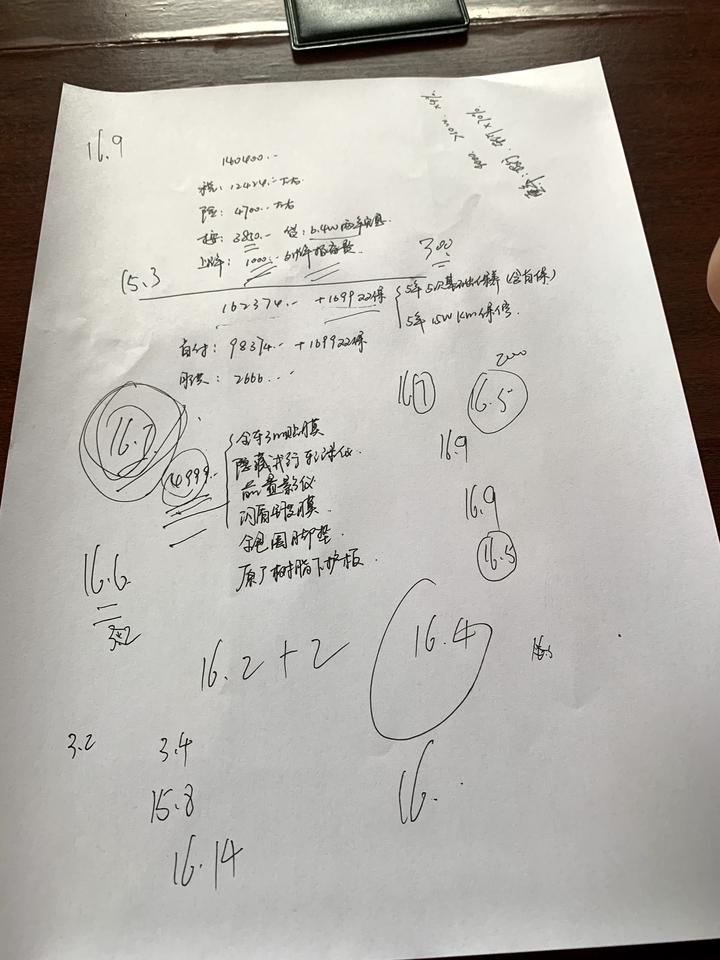 16.9
140400.-
税: 12424.- 左右
险: 4700.- 左右
3850.- 贷: 6.4W 两年免息
上牌: 1000.-
300
15.3
162374.- +1699 22保
5年5次基础保养 (含首保)
5年 15W Km 保修.
首付: 98374.- +1699 22保
月供: 2666.-
2000
16.7
16.5
16.7
16.9
4999.-
全车3m贴膜
隐藏式行车记录仪
前置影仪
闪盾镀膜
全包围脚垫.
原厂树脂下护板
16.9
16.5
16.6
3.2
16.2+2
16.4
3.2
3.4
16.
15.8
16.14